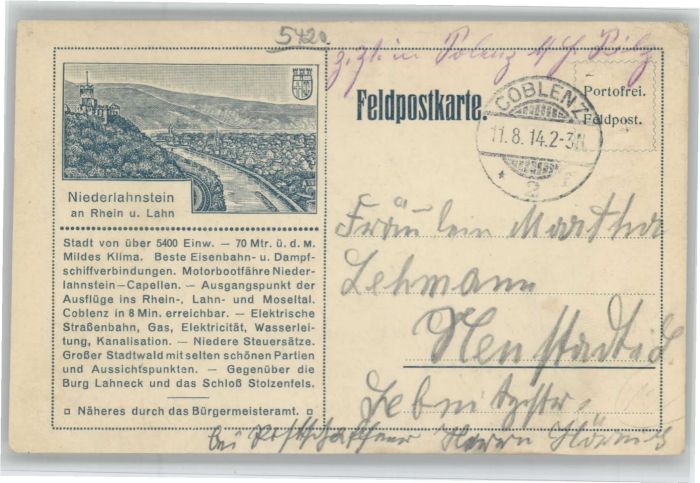 5420.
z. Zt. in Polenz b/
Feldpostkarte.
COBLENZ
11.8.14.2-3N.
* 2
Portofrei.
Feldpost.
Niederlahnstein
an Rhein u. Lahn
Stadt von über 5400 Einw. — 70 Mtr. ü. d. M.
Mildes Klima. Beste Eisenbahn- u. Dampf-
schiffverbindungen. Motorbootfähre Nieder-
lahnstein–Capellen. — Ausgangspunkt der
Ausflüge ins Rhein-, Lahn- und Moseltal.
Coblenz in 8 Min. erreichbar. — Elektrische
Straßenbahn, Gas, Elektricität, Wasserlei-
tung, Kanalisation. — Niedere Steuersätze.
Großer Stadtwald mit selten schönen Partien
und Aussichtspunkten. — Gegenüber die
Burg Lahneck und das Schloß Stolzenfels.
¤ Näheres durch das Bürgermeisteramt. ¤
Fräulein Martha
Lehmann
Neustadt i. S.
Sebnitzerstr.
bei Postschaffner Herrn